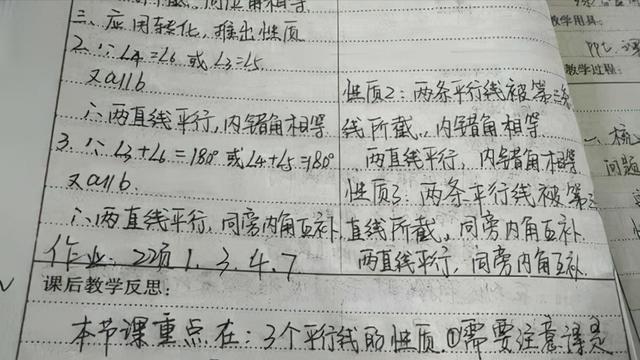 同位角相等
三、应用转化，推出性质
2、∵∠4=∠6 或∠3=∠5
又a∥b
∴两直线平行，内错角相等
3、∵∠3+∠6=180° 或∠4+∠5=180°
又a∥b.
∴两直线平行，同旁内角互补.
作业：22页 1、3、4、7
性质2：两条平行线被第三条
线所截，内错角相等
两直线平行，内错角相等
性质3：两条平行线被第三
直线所截，同旁内角互补
两直线平行，同旁内角互补.
课后教学反思：
本节课重点在：3个平行线的性质.①需要注意
教学用具：
PPT、课
教学过程：
一、
问题